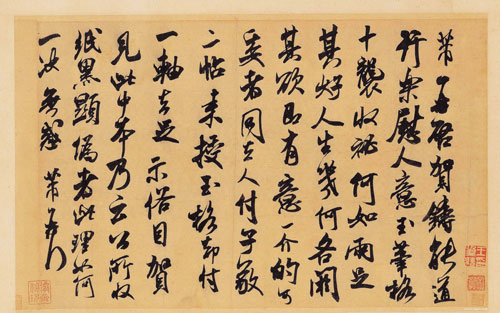 芾再啓賀鑄能道
行樂慰人意玉筆格
十襲收秘何如兩足
其好人生幾何各闕
其欲即有意一介的可
委者同去人付子敬
二帖來授玉格却付
一軸去足 示俗目賀
見此中本乃云公所收
紙黑顯偽者此理如何
一決無惑 芾再行